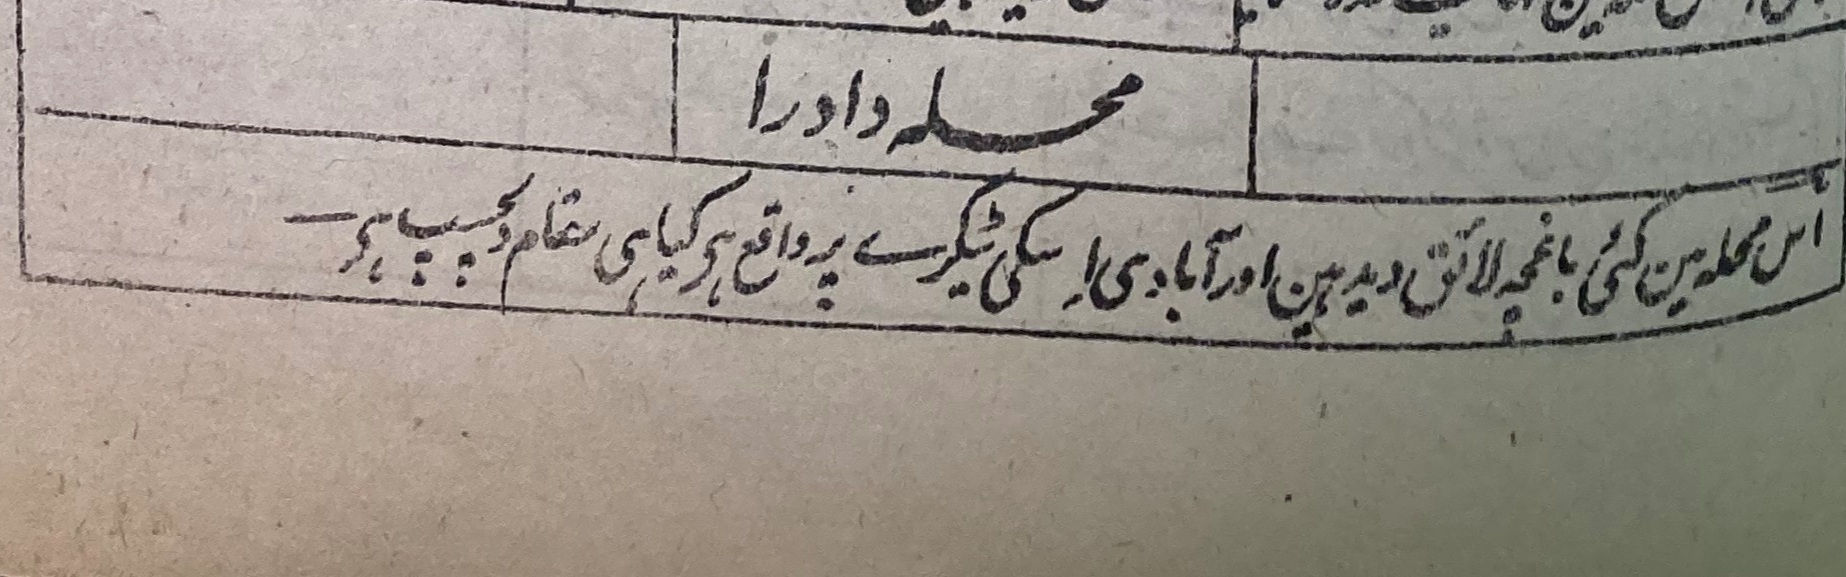 محله داورا
اس محله مین کئی باغچہ لائق دید ہین اور آبادی اسکی ٹیکرے پر واقع ہو کیا ہی مقام دلچسپ ہو